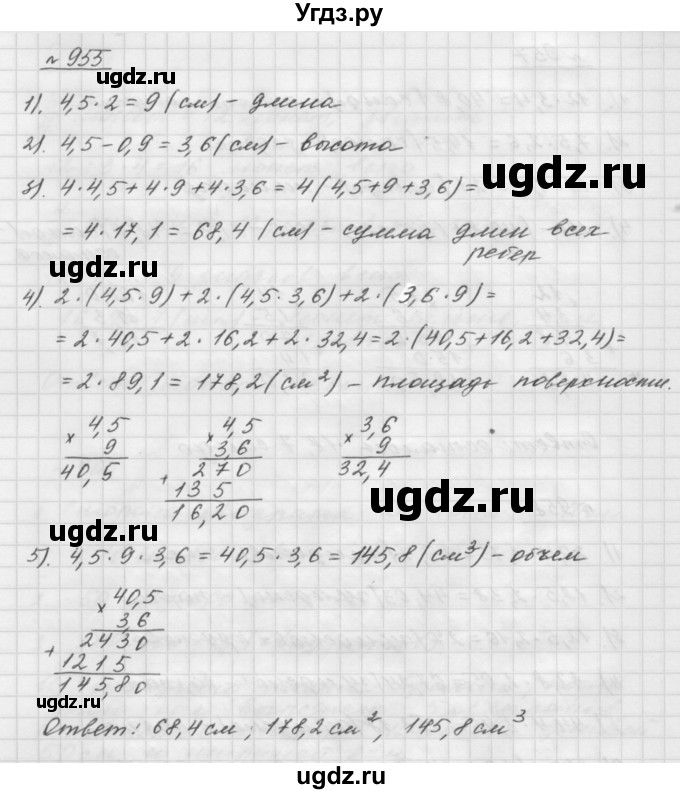 Угдз.ру
№ 955
ugdz.ru ugdz.ru
1). 4,5·2=9 (см) - длина
2). 4,5-0,9=3,6(см) - высота
3). 4·4,5+4·9+4·3,6=4(4,5+9+3,6)=
ugdz.ru
=4·17,1=68,4 (см) - сумма длин всех
ребер
ugdz.ru
4). 2·(4,5·9)+2·(4,5·3,6)+2·(3,6·9)=
=2·40,5+2·16,2+2·32,4=2·(40,5+16,2+32,4)=
=2·89,1=178,2(см²) - площадь поверхности.
× 4,5 × 4,5 × 3,6
9 3,6 9
40,5 + 270 32,4
135
16,20
ugdz.ru
ugdz.ru
5). 4,5·9·3,6=40,5·3,6=145,8(см³) - объем
× 40,5
3,6
+ 2430
1215
145,80
ugdz.ru
ugdz.ru
Ответ: 68,4см; 178,2см², 145,8см³
ugdz.ru